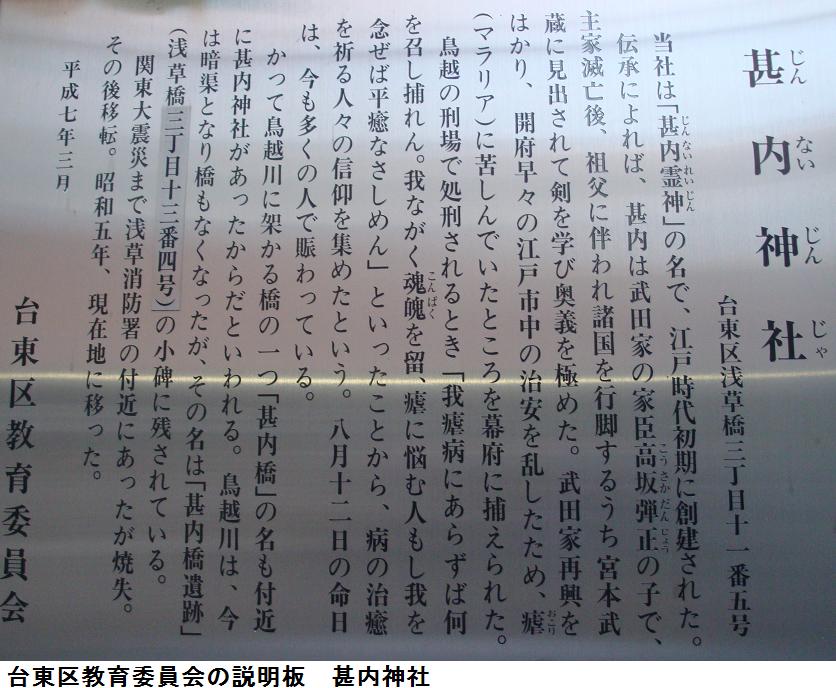 甚内神社
じんないじんじゃ
台東区浅草橋三丁目十一番五号
当社は「甚内霊神」の名で、江戸時代初期に創建された。
じんないれいじん
伝承によれば、甚内は武田家の家臣高坂弾正の子で、
こうさかだんじょう
主家滅亡後、祖父に伴われ諸国を行脚するうち宮本武
蔵に見出されて剣を学び奥義を極めた。武田家再興を
はかり、開府早々の江戸市中の治安を乱したため、瘧
おこり
(マラリア)に苦しんでいたところを幕府に捕えられた。
鳥越の刑場で処刑されるとき「我瘧病にあらずば何
を召し捕れん。我ながく魂魄を留、瘧に悩む人もし我を
こんぱく
念ぜば平癒なさしめん」といったことから、病の治癒
を祈る人々の信仰を集めたという。八月十二日の命日
は、今も多くの人で賑わっている。
かって鳥越川に架かる橋の一つ「甚内橋」の名も付近
に甚内神社があったからだといわれる。鳥越川は、今
は暗渠となり橋もなくなったが、その名は「甚内橋遺跡」
(浅草橋三丁目十三番四号)の小碑に残されている。
関東大震災まで浅草消防署の付近にあったが焼失。
その後移転。昭和五年、現在地に移った。
平成七年三月
台東区教育委員会
台東区教育委員会の説明板　甚内神社